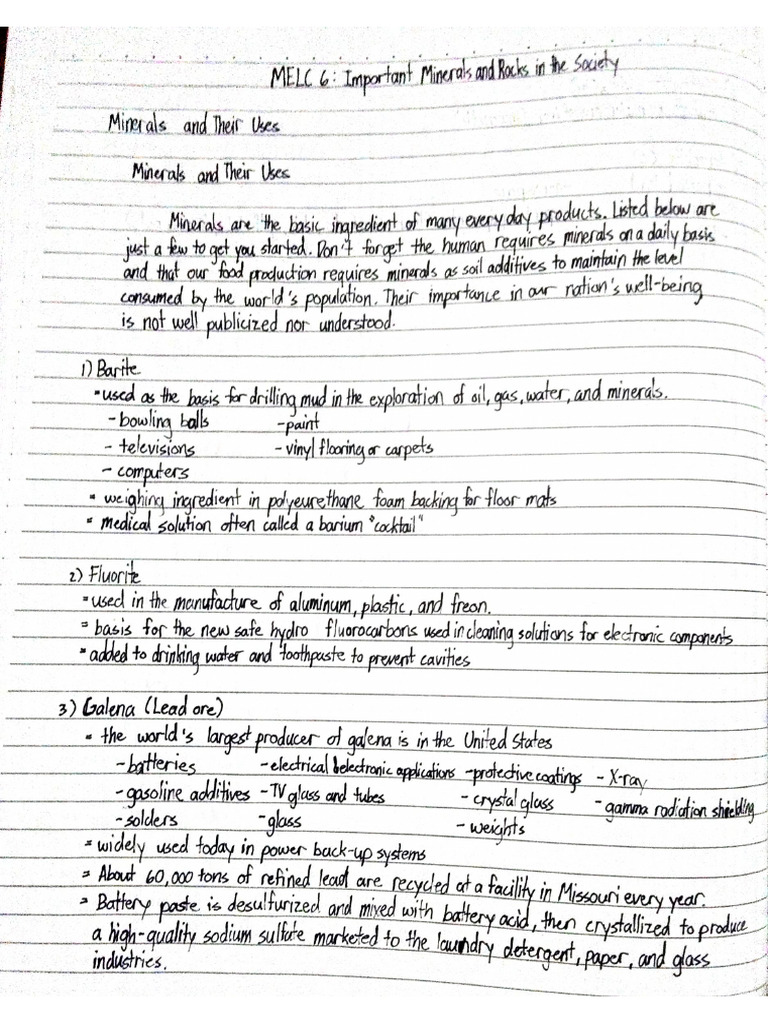 MELC 6: Important Minerals and Rocks in the Society
Minerals and Their Uses
Minerals and Their Uses
Minerals are the basic ingredient of many every day products. Listed below are
just a few to get you started. Don't forget the human requires minerals on a daily basis
and that our food production requires minerals as soil additives to maintain the level
consumed by the world's population. Their importance in our nation's well-being
is not well publicized nor understood.
1) Barite
• used as the basis for drilling mud in the exploration of oil, gas, water, and minerals.
- bowling balls - paint
- televisions - vinyl flooring or carpets
- computers
• weighing ingredient in polyeurethane foam backing for floor mats
• medical solution often called a barium "cocktail"
2) Fluorite
• used in the manufacture of aluminum, plastic, and freon.
• basis for the new safe hydro fluorocarbons used in cleaning solutions for electronic components
• added to drinking water and toothpaste to prevent cavities
3) Galena (Lead ore)
• the world's largest producer of galena is in the United States
- batteries - electrical & electronic applications - protective coatings - X-ray
- gasoline additives - TV glass and tubes - crystal glass - gamma radiation shielding
- solders - glass - weights
• widely used today in power back-up systems
• About 60,000 tons of refined lead are recycled at a facility in Missouri every year.
• Battery paste is desulfurized and mixed with battery acid, then crystallized to produce
a high-quality sodium sulfate marketed to the laundry detergent, paper, and glass
industries.